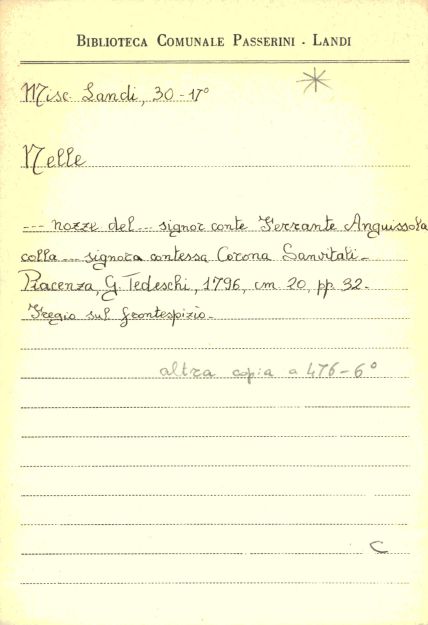 BIBLIOTECA COMUNALE PASSERINI - LANDI
Misc. Landi, 30-17°
Nelle
--- nozze del ... signor conte Ferrante Anguissola
colla ... signora contessa Corona Sanvitali -
Piacenza, G. Tedeschi, 1796, cm. 20, pp. 32 -
Fregio sul frontespizio -
altra copia a 476-6°
C